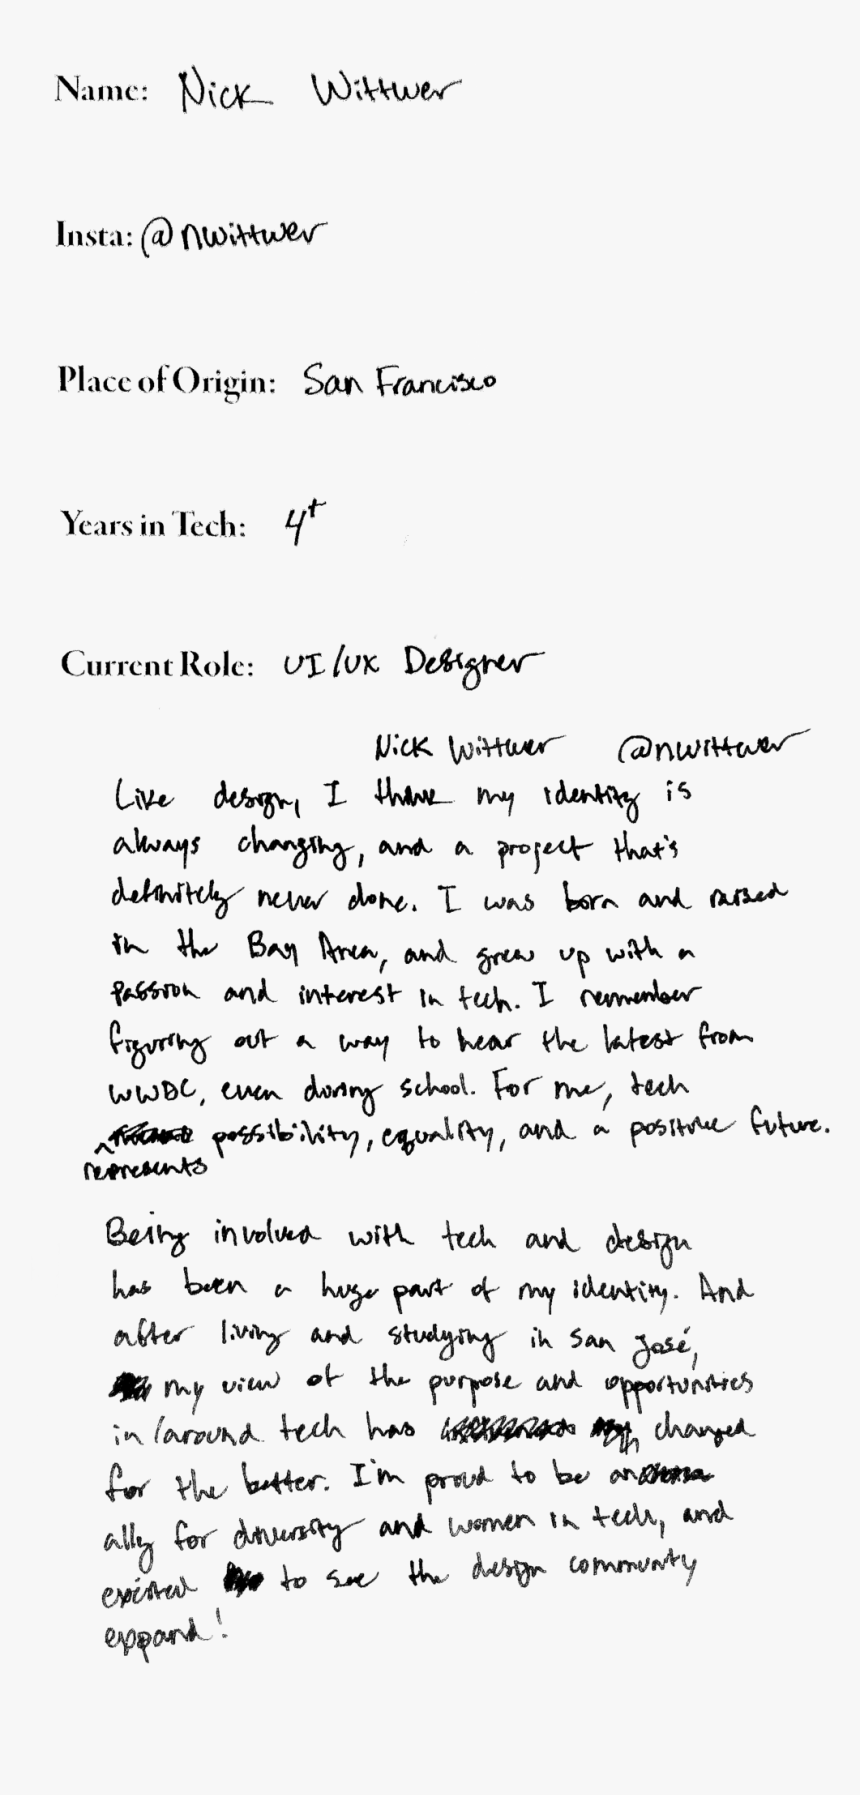 Name: Nick Wittwer
Insta: @nwittwer
Place of Origin: San Francisco
Years in Tech: 4+
Current Role: UI/UX Designer
Nick Wittwer @nwittwer
Like design, I think my identity is
always changing, and a project that's
definitely never done. I was born and raised
in the Bay Area, and grew up with a
passion and interest in tech. I remember
figuring out a way to hear the latest from
WWDC, even during school. For me, tech
^ possibility, equality, and a positive future.
represents
Being involved with tech and design
has been a huge part of my identity. And
after living and studying in San José,
my view of the purpose and opportunities
in/around tech has changed
for the better. I'm proud to be an
ally for diversity and women in tech, and
excited to see the design community
expand!